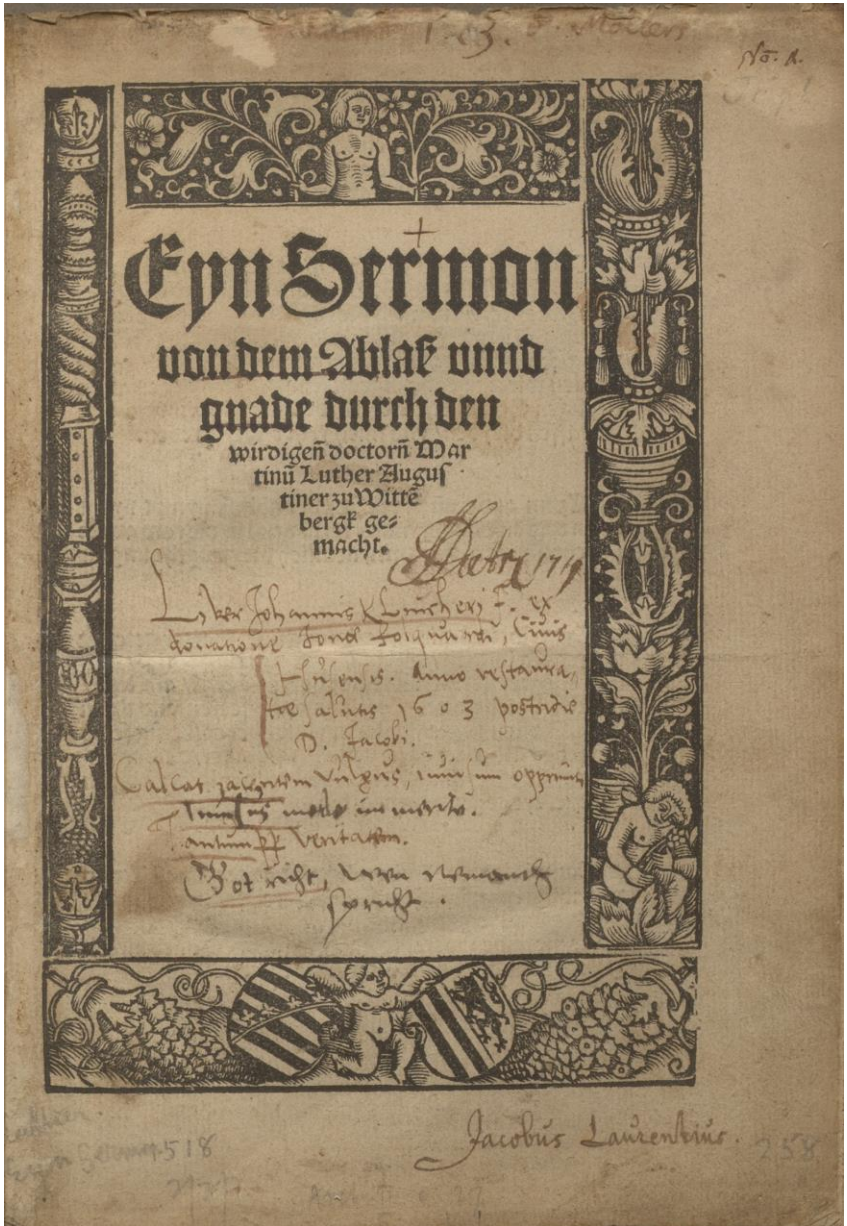 1.3.
No. A.
Eyn Sermon
von dem Ablaß vnnd
gnade durch den
wirdigen̄ doctorn̄ Mar
tinū Luther Augus
tiner zu Wittē
bergk ge⸗
macht.
1719
Liber Johannis F. ex
donatione Civis
Anno restaura,
tæ salutis 1603 postridie
D. Jacobi.
Calcat jacentem vulgus,
immerito.
veritatem.
Got richt, wen nemandt
spricht.
Jacobus Laurentius.
518
258